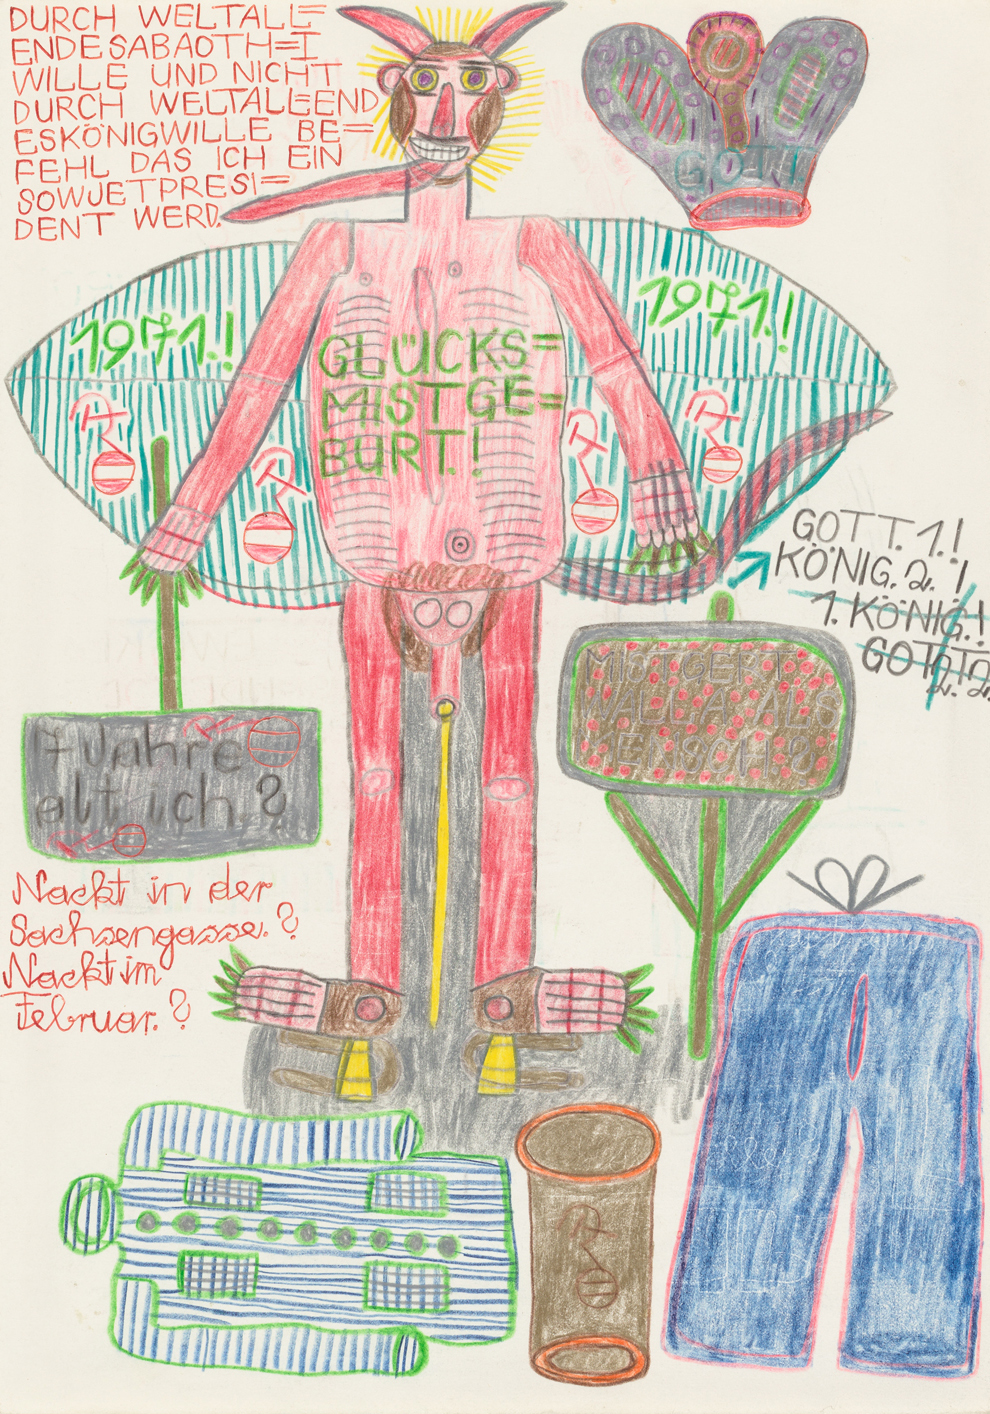 DURCH WELTALL=
ENDESABAOTH=I
WILLE UND NICHT
DURCH WELTALLEEND
ESKÖNIGWILLE BE=
FEHL DAS ICH EIN
SOWJETPRESI=
DENT WERD.
GOTT
1971.!
1971.!
GLÜCKS=
MISTGE=
BURT.!
GOTT. 1.!
KÖNIG. 2. !
1. KÖNIG.!
GOTOTO
2. 2.
MISTGERT
WALLA. ALS
MENSCH.?
7 Jahre
alt ich. ?
Nackt in der
Sachsengasse. ?
Nackt im
Februar. ?